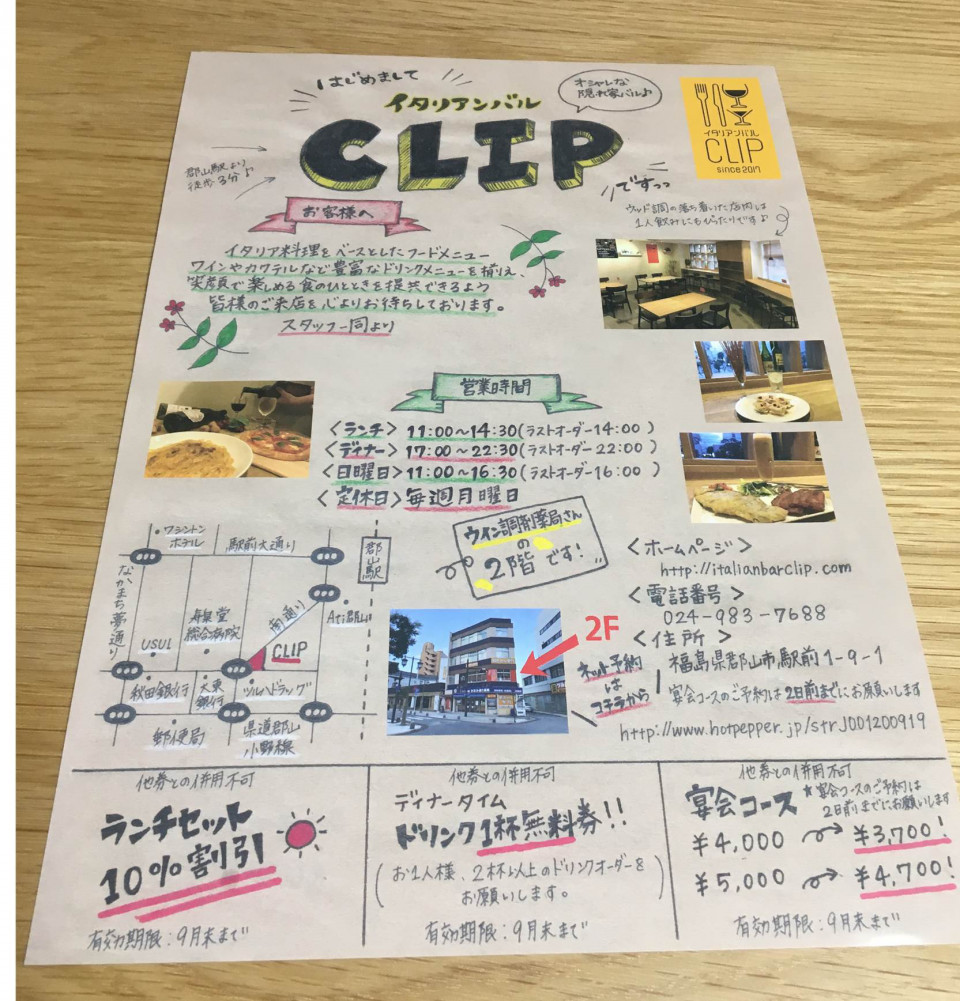 はじめまして
イタリアンバル
CLIP
ですっっ
オシャレな
隠れ家バル♪
イタリアンバル
CLIP
since 2017
郡山駅より
徒歩3分♪
お客様へ
イタリア料理をベースとしたフードメニュー
ワインやカクテルなど豊富なドリンクメニューを揃え、
笑顔で楽しめる食のひとときを提供できるよう
皆様のご来店を心よりお待ちしております。
スタッフ一同より
ウッド調の落ち着いた店内は
1人飲みにもぴったりです♪
営業時間
<ランチ> 11:00〜14:30(ラストオーダー14:00 )
<ディナー> 17:00〜22:30(ラストオーダー22:00 )
<日曜日> 11:00〜16:30(ラストオーダー16:00 )
<定休日> 毎週月曜日
ウイン調剤薬局さん
の
2階です!
ワシントン
ホテル
駅前大通り
郡山駅
なかまち夢通り
寿泉堂
総合病院
南通り
Ati郡山
USUI
CLIP
秋田銀行
大東
銀行
ツルハドラッグ
郵便局
県道郡山
小野線
2F
<ホームページ>
http://italianbarclip.com
<電話番号>
024-983-7688
<住所>
福島県郡山市駅前1-9-1
宴会コースのご予約は2日前までにお願いします
ネット予約
は
コチラから
http://www.hotpepper.jp/strJ001200919
他券との併用不可
ランチセット
10%割引
有効期限:9月末まで
他券との併用不可
ディナータイム
ドリンク1杯無料券!!
(お1人様、2杯以上のドリンクオーダーを
お願いします。)
有効期限:9月末まで
他券との併用不可
宴会コース
★宴会コースのご予約は
2日前までにお願いします
¥4,000 ¥3,700!
¥5,000 ¥4,700!
有効期限:9月末まで